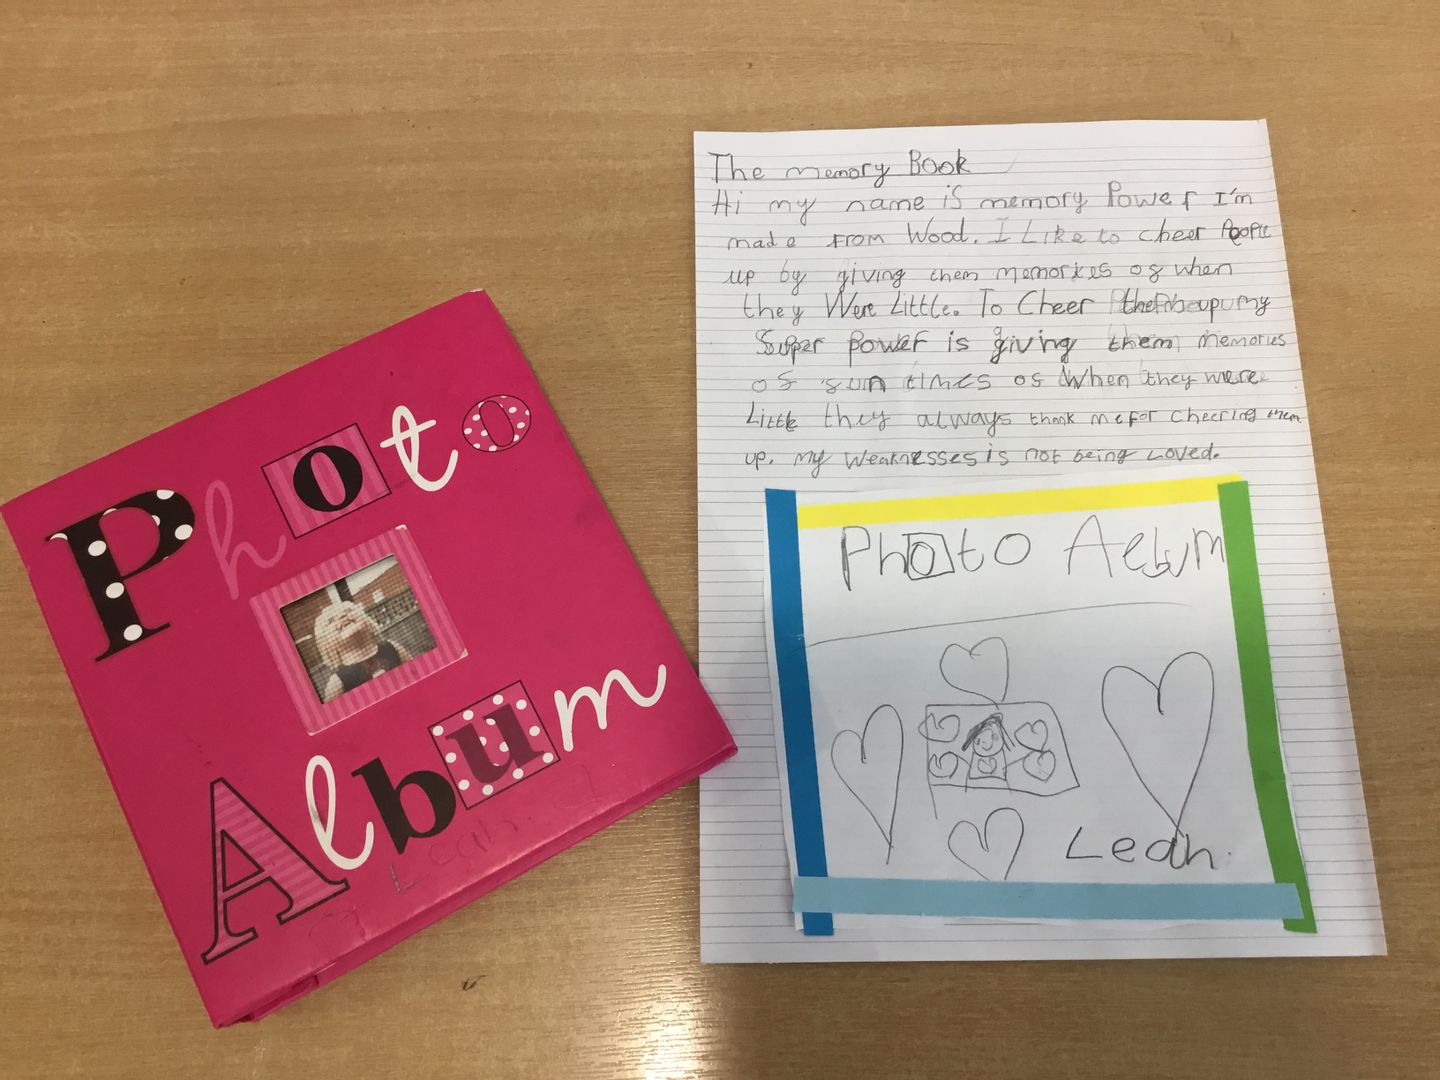 Photo
Album
Leah.
The memory Book
Hi my name is memory Power I'm
made From Wood. I Like to cheer People
up by giving them memories of when
they Were Little. To Cheer up my
Super power is giving them memories
of fun times of When they were
Little they always thank me for cheering them
up. my weaknesses is not being Loved.
Photo Album
Leah.